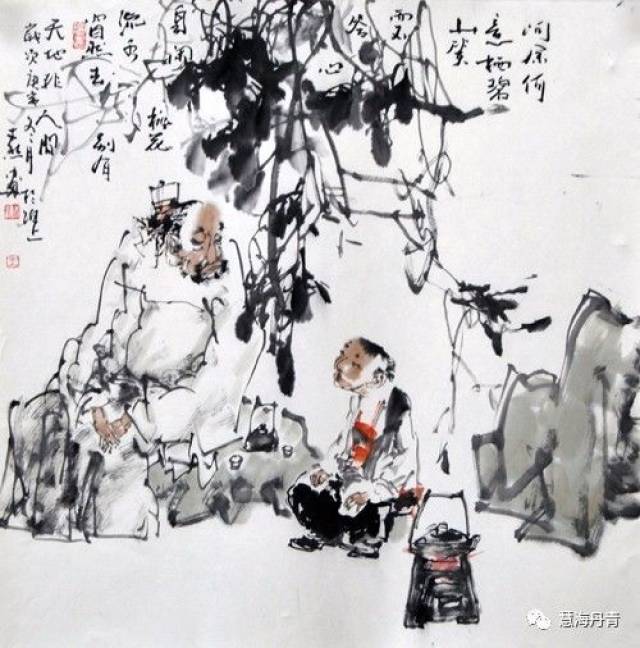 问余何
意栖碧
山笑
而不
答心
自闲
桃花
流水
窅然去
别有
天地非人间
岁次庚
冬月於
慧海丹青